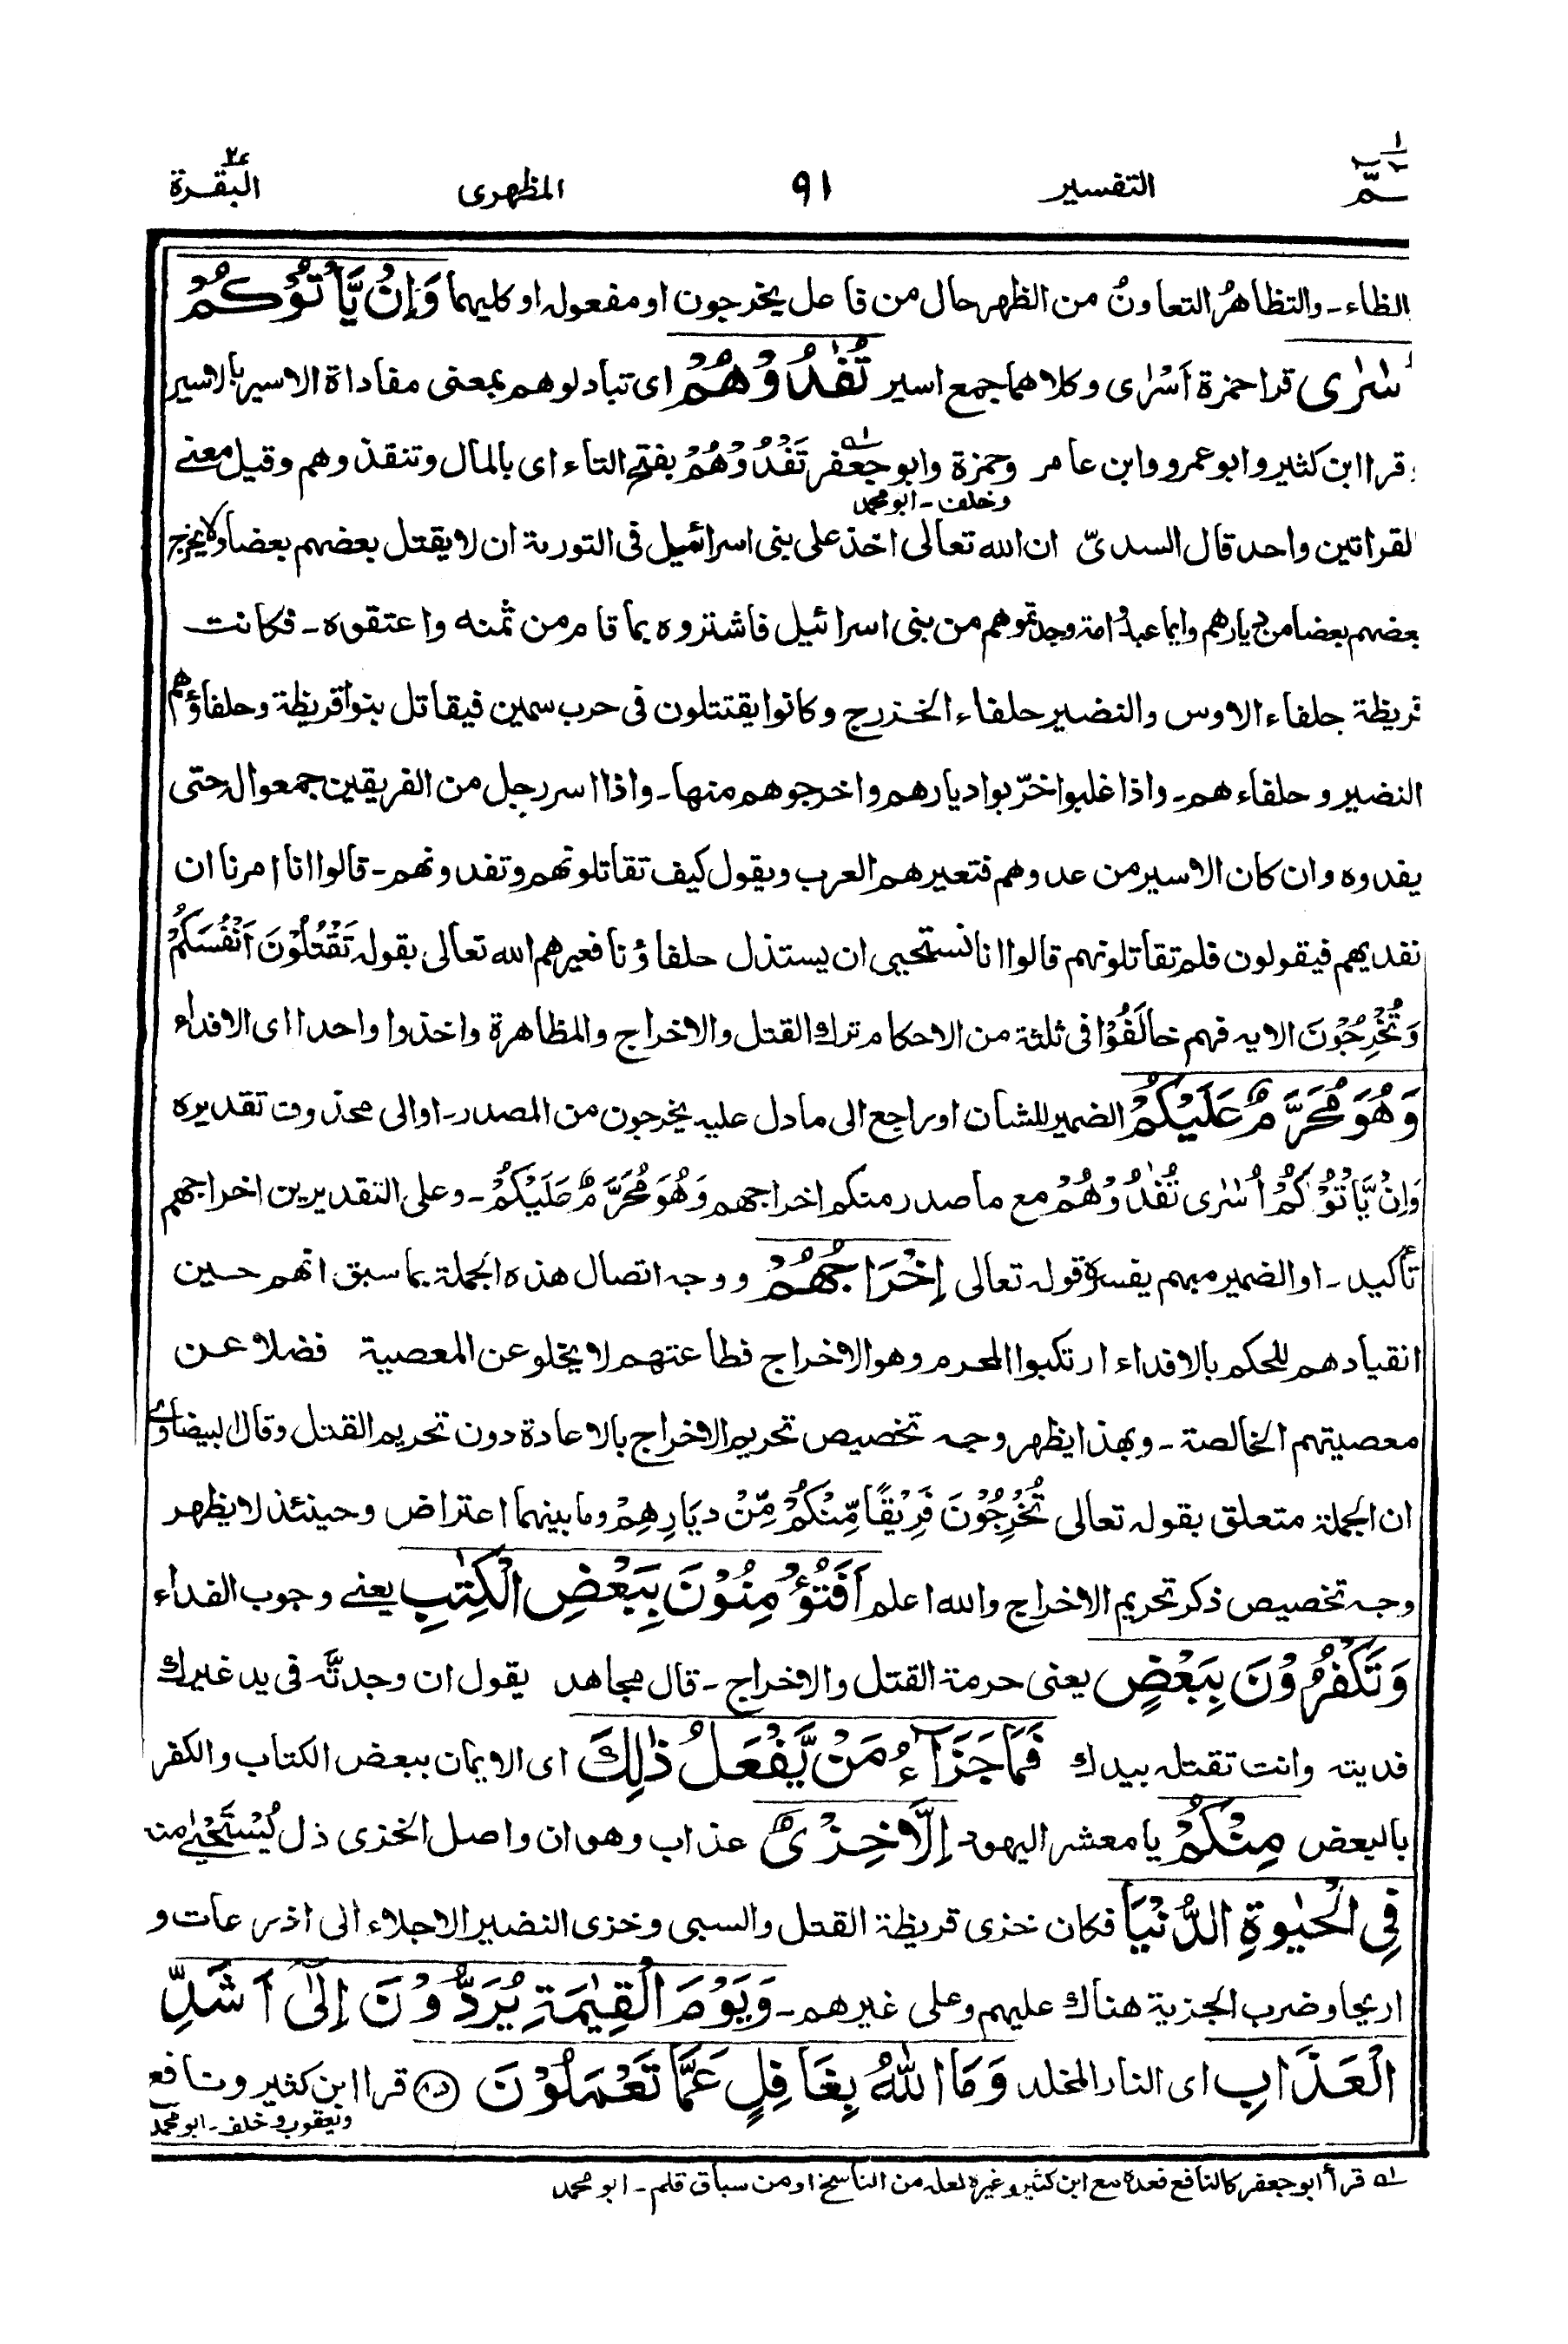 الٓمّٓ ١ التفسير ٩١ المظهرى البقرة ٢
الظاء ـ والتظاهرُ التعاونُ من الظهر حال من فاعل يخرجون او مفعوله او كليهما وَاِنْ يَّاْتُوْكُمْ
اُسٰرٰى قرا حمزة اَسْرٰى وكلاهما جمع اسير تُفٰدُوْهُمْ اى تبادلوهم بمعنى مفاداة الاسير بالاسير
وقرا ابن كثير وابو عمرو وابن عامر وحمزة وابو جعفر له تَفْدُوْهُمْ بفتح التاء اى بالمال وتنقذوهم وقيل معنے
وخلف ـ ابو محمد
القراتين واحد قال السدىّ ان الله تعالى اخذ على بنى اسرائيل فى التورىة ان لا يقتل بعضهم بعضا ولا يخرج
بعضهم بعضا من ديارهم وايما عبد او امة وجدتموهم من بنى اسرائيل فاشتروه بما قام من ثمنه واعتقوه ـ فكانت
قريظة حلفاء الاوس والنضير حلفاء الخزرج وكانوا يقتتلون فى حرب سمين فيقاتل بنوا قريظة وحلفاؤهم
النضير وحلفاءهم ـ واذا غلبوا اخرّبوا ديارهم واخرجوهم منها ـ واذا اسر رجل من الفريقين جمعوا له حتى
يفدوه وان كان الاسير من عدوهم فتعيرهم العرب ويقول كيف تقاتلونهم وتفدونهم ـ قالوا انا امرنا ان
نفديهم فيقولون فلم تقاتلونهم قالوا انا نستحيى ان يستذل حلفاؤنا فعيرهم الله تعالى بقوله تَقْتُلُوْنَ اَنْفُسَكُمْ
وَتُخْرِجُوْنَ الايه فهم خالَفُوْا فى ثلثة من الاحكام ترك القتل والاخراج والمظاهرة واخذوا واحدا اى الافداء
وَهُوَ مُحَرَّمٌ عَلَيْكُمْ الضمير للشان او راجع الى ما دل عليه يخرجون من المصدر ـ او الى محذوف تقديره
وَاِنْ يَّاْتُوْكُمْ اُسٰرٰى تُفٰدُوْهُمْ مع ما صدر منكم اخراجهم وَهُوَ مُحَرَّمٌ عَلَيْكُمْ ـ وعلى التقديرين اخراجهم
تأكيد ـ او الضمير مبهم يفسره قوله تعالى اِخْرَاجُهُمْ ووجه اتصال هذه الجملة بما سبق انهم حين
انقيادهم للحكم بالافداء ارتكبوا المحرم وهو الاخراج فطاعتهم لا يخلو عن المعصية فضلا عن
معصيتهم الخالصة ـ وبهذا يظهر وجه تخصيص تحريم الاخراج بالاعادة دون تحريم القتل وقال البيضاوى
ان الجملة متعلق بقوله تعالى تُخْرِجُوْنَ فَرِيْقًا مِّنْكُمْ مِّنْ دِيَارِهِمْ وما بينهما اعتراض وحينئذ لا يظهر
وجه تخصيص ذكر تحريم الاخراج والله اعلم اَفَتُؤْمِنُوْنَ بِبَعْضِ الْكِتٰبِ يعنے وجوب الفداء
وَتَكْفُرُوْنَ بِبَعْضٍ يعنى حرمة القتل والاخراج ـ قال مجاهد يقول ان وجدتّه فى يد غيرك
فديته وانت تقتله بيدك فَمَا جَزَآءُ مَنْ يَّفْعَلُ ذٰلِكَ اى الايمان ببعض الكتاب والكفر
بالبعض مِنْكُمْ يا معشر اليهود اِلَّا خِزْىٌ عذاب وهوان واصل الخزى ذل يُسْتَحْيٰے منه
فِى الْحَيٰوةِ الدُّنْيَا فكان خزى قريظة القتل والسبى وخزى النضير الاجلاء الى اذرعات و
اريحا وضرب الجزية هناك عليهم وعلى غيرهم ـ وَيَوْمَ الْقِيٰمَةِ يُرَدُّوْنَ اِلٰٓى اَشَدِّ
الْعَذَابِ اى النار المخلد وَمَا اللّٰهُ بِغَافِلٍ عَمَّا تَعْمَلُوْنَ ۝٨٥ قرا ابن كثير ونافع
ويعقوب وخلف ـ ابو محمد
له قرأ ابو جعفر كالنافع فعده مع ابن كثير وغيره لعله من الناسخ او من سباق قلم ـ ابو محمد